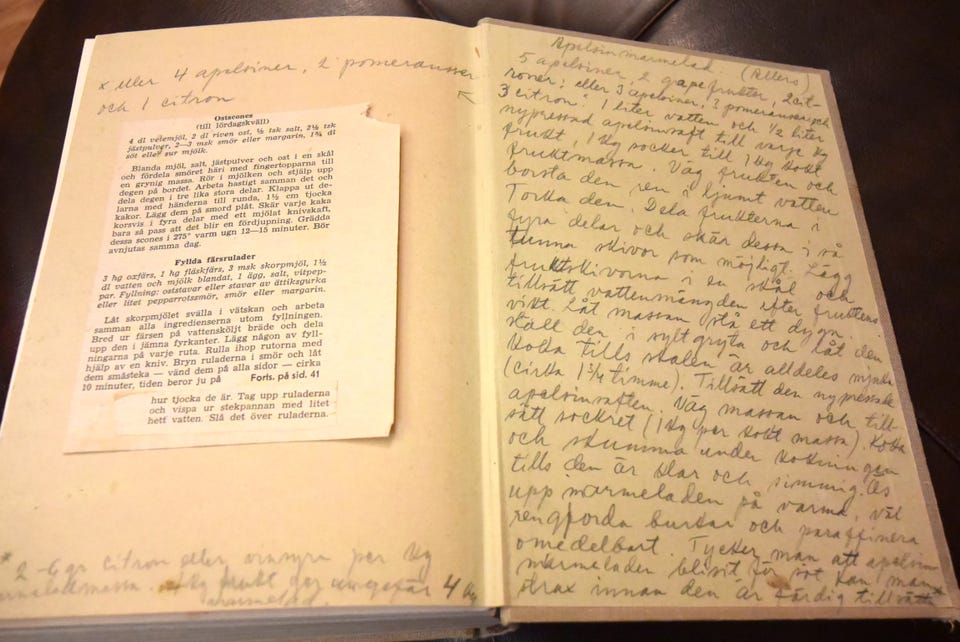 x eller 4 apelsiner, 2 pomeransser
och 1 citron
Ostscones
(till lördagskväll)
4 dl vetemjöl, 2 dl riven ost, ½ tsk salt, 2½ tsk
jästpulver, 2—3 msk smör eller margarin, 1¾ dl
söt eller sur mjölk.
Blanda mjöl, salt, jästpulver och ost i en skål
och fördela smöret häri med fingertopparna till
en grynig massa. Rör i mjölken och stjälp upp
degen på bordet. Arbeta hastigt samman det och
dela degen i tre lika stora delar. Klappa ut de-
larna med händerna till runda, 1½ cm tjocka
kakor. Lägg dem på smord plåt. Skär varje kaka
korsvis i fyra delar med ett mjölat knivskaft,
bara så pass att det blir en fördjupning. Grädda
dessa scones i 275° varm ugn 12—15 minuter. Bör
avnjutas samma dag.
Fyllda färsrulader
3 hg oxfärs, 1 hg fläskfärs, 3 msk skorpmjöl, 1½
dl vatten och mjölk blandat, 1 ägg, salt, vitpep-
par. Fyllning: oststavar eller stavar av ättiksgurka
eller litet pepparrotssmör, smör eller margarin.
Låt skorpmjölet svälla i vätskan och arbeta
samman alla ingredienserna utom fyllningen.
Bred ur färsen på vattensköljt bräde och dela
upp den i jämna fyrkanter. Lägg någon av fyll-
ningarna på varje ruta. Rulla ihop rutorna med
hjälp av en kniv. Bryn ruladerna i smör och låt
dem småsteka — vänd dem på alla sidor — cirka
10 minuter, tiden beror ju på Forts. på sid. 41
hur tjocka de är. Tag upp ruladerna
och vispa ur stekpannan med litet
hett vatten. Slå det över ruladerna.
* 2-6 gr citron eller vinsyra per kg
kg frukt ger ungefär 4 kg
marmelad.
Apelsinmarmelad. (Allers)
5 apelsiner, 2 grapefrukter, 2 cit-
roner; eller 3 apelsiner, 3 pomeranser och
3 citron: 1 liter vatten och 1/2 liter
nypressad apelsinsaft till varje kg
frukt, 1 kg socker till 1 kg kokt
fruktmassa. Väg frukten och
borsta den ren i ljumt vatten
Torka den. Dela frukterna i
fyra delar och skär dessa i så
tunna skivor som möjligt. Lägg
fruktskivorna i en skål och
tillsätt vattenmängden efter fruktens
vikt. Låt massan stå ett dygn.
Ställ den i syltgryta och låt den
koka tills skalen är alldeles mjuka
(cirka 1 3/4 timme). Tillsätt den nypressade
apelsinsaften. Väg massan och till-
sätt sockret (1 kg per kokt massa). Koka
och skumma under kokningen
tills den är klar och simmig. Ös
upp marmeladen på varma, väl
rengjorda burkar och paraffinera
omedelbart. Tycker man att apelsin
marmeladen blivit för söt kan man*
strax innan den är färdig tillsätta